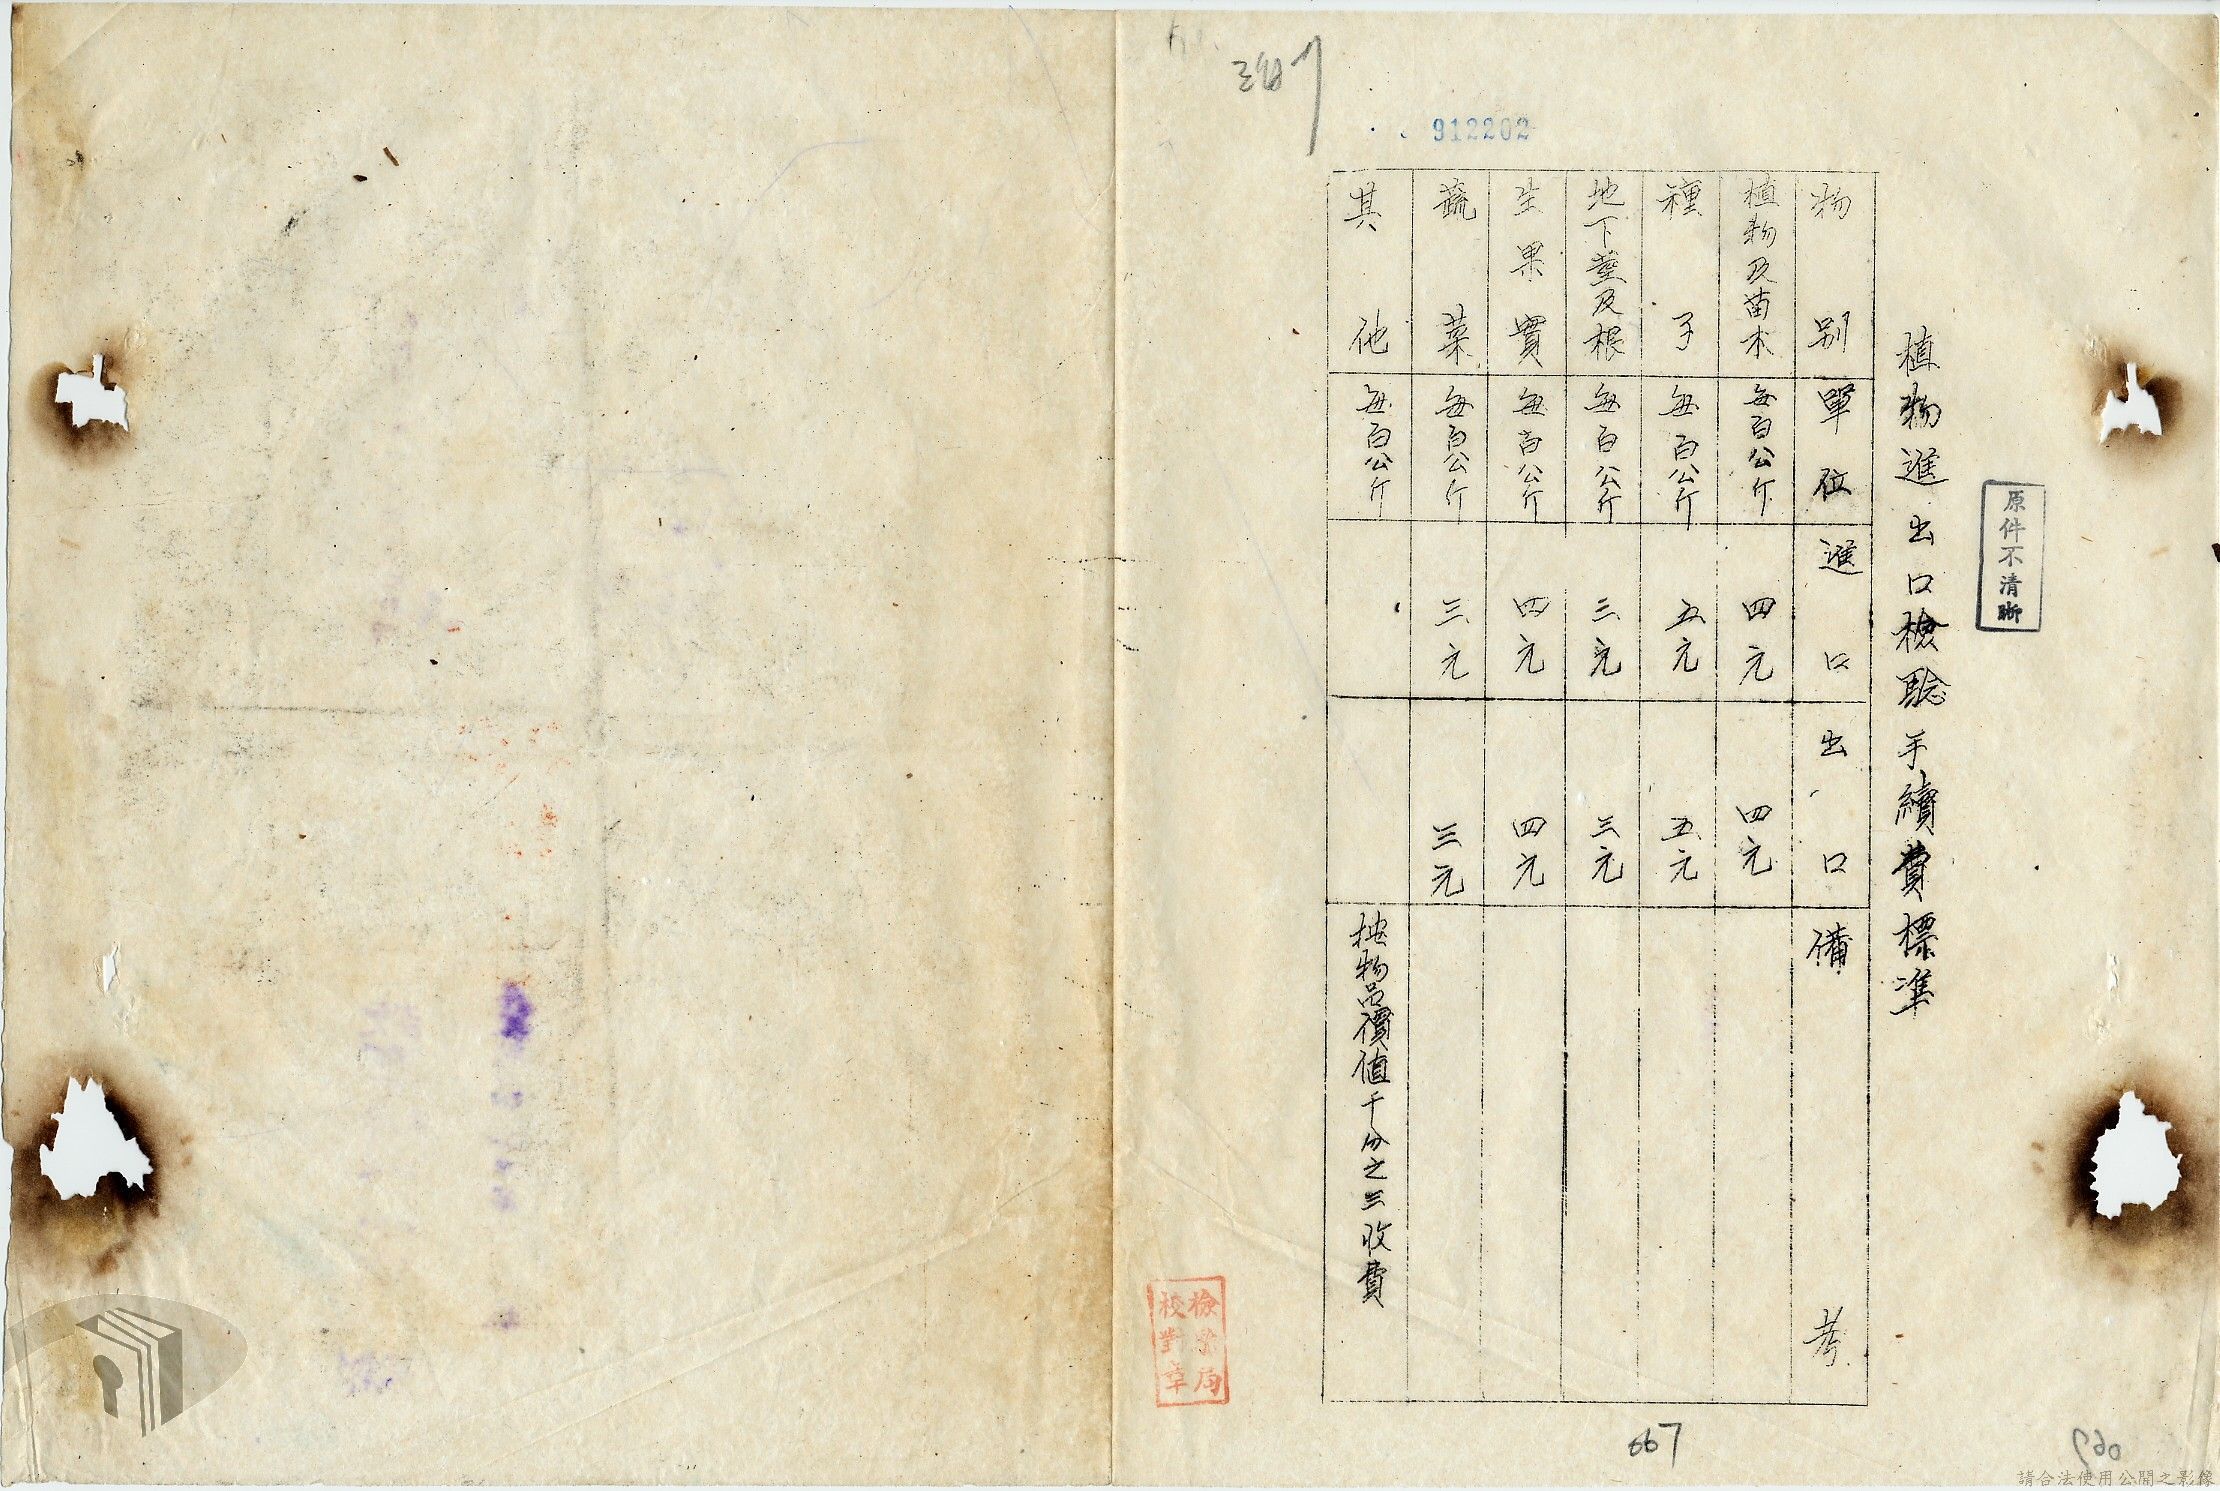 912202
原件不清晰
植物進出口檢驗手續費標準
物別 單位 進口 出口 備考
植物及苗木 每百公斤 四元 四元
種子 每百公斤 五元 五元
地下莖及根 每百公斤 三元 三元
生果實 每百公斤 四元 四元
蔬菜 每百公斤 三元 三元
其他 每百公斤 按物品價值千分之三收費
校對章
667
請合法使用公開之影像